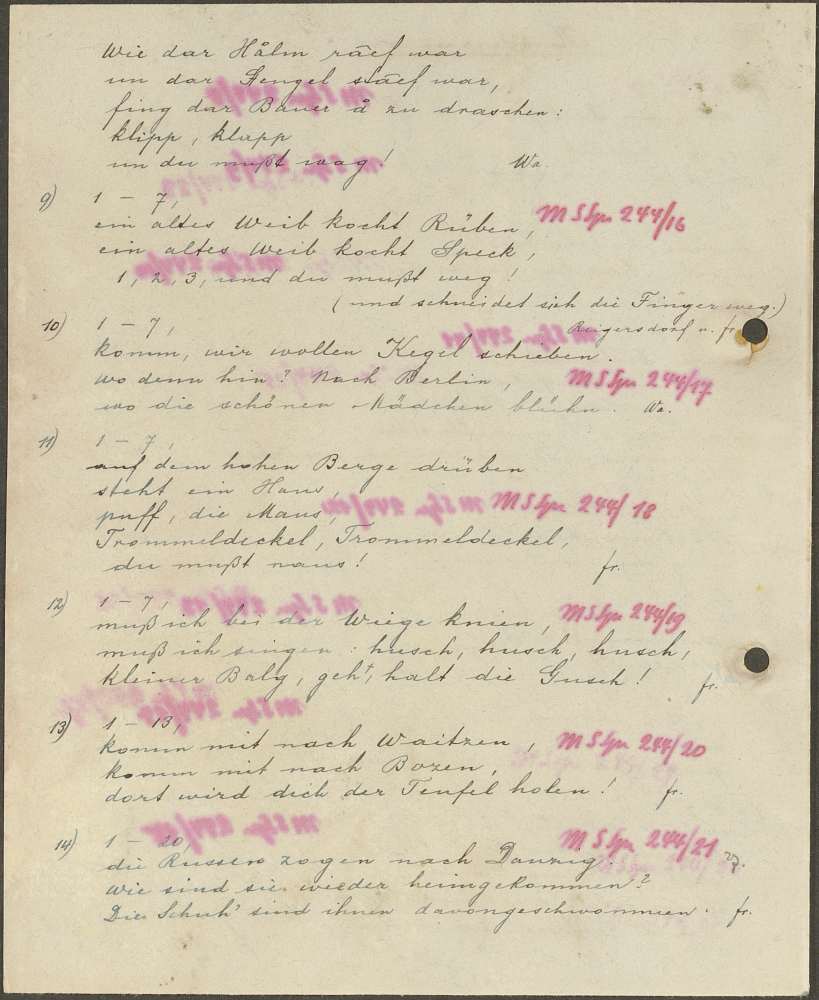 Wie dar Hålm räef war
un dar Fengel stäef war,
fing dar Bauer å zu draschen:
klipp, klapp
un du mußt wag! Wa.
9) 1 - 7,
ein altes Weib kocht Rüben, MSSpr 244/16
ein altes Weib kocht Speck,
1, 2, 3, und du mußt weg!
(und schneidet sich die Finger weg.)
Reigersdorf u. fr.
10) 1 - 7,
komm, wir wollen Kegel schieben.
wo denn hin? Nach Berlin, MSSpr 244/17
wo die schönen Mädchen blühn. Wa.
11) 1 - 7,
auf dem hohen Berge drüben
steht ein Haus,
puff, die Maus, MSSpr 244/18
Trommeldeckel, Trommeldeckel,
du mußt naus! fr.
12) 1 - 7,
muß ich bei der Wiege knien, MSSpr 244/19
muß ich singen: husch, husch, husch,
kleiner Balg, geh, halt die Gusch! fr.
13) 1 - 13,
komm mit nach Waitzen, MSSpr 244/20
komm mit nach Bozen,
dort wird dich der Teufel holen! fr.
14) 1 - 20, MSSpr 244/21
die Russen zogen nach Danzig.
wie sind sie wieder heimgekommen?
Die Schuh' sind ihnen davongeschwommen. fr.